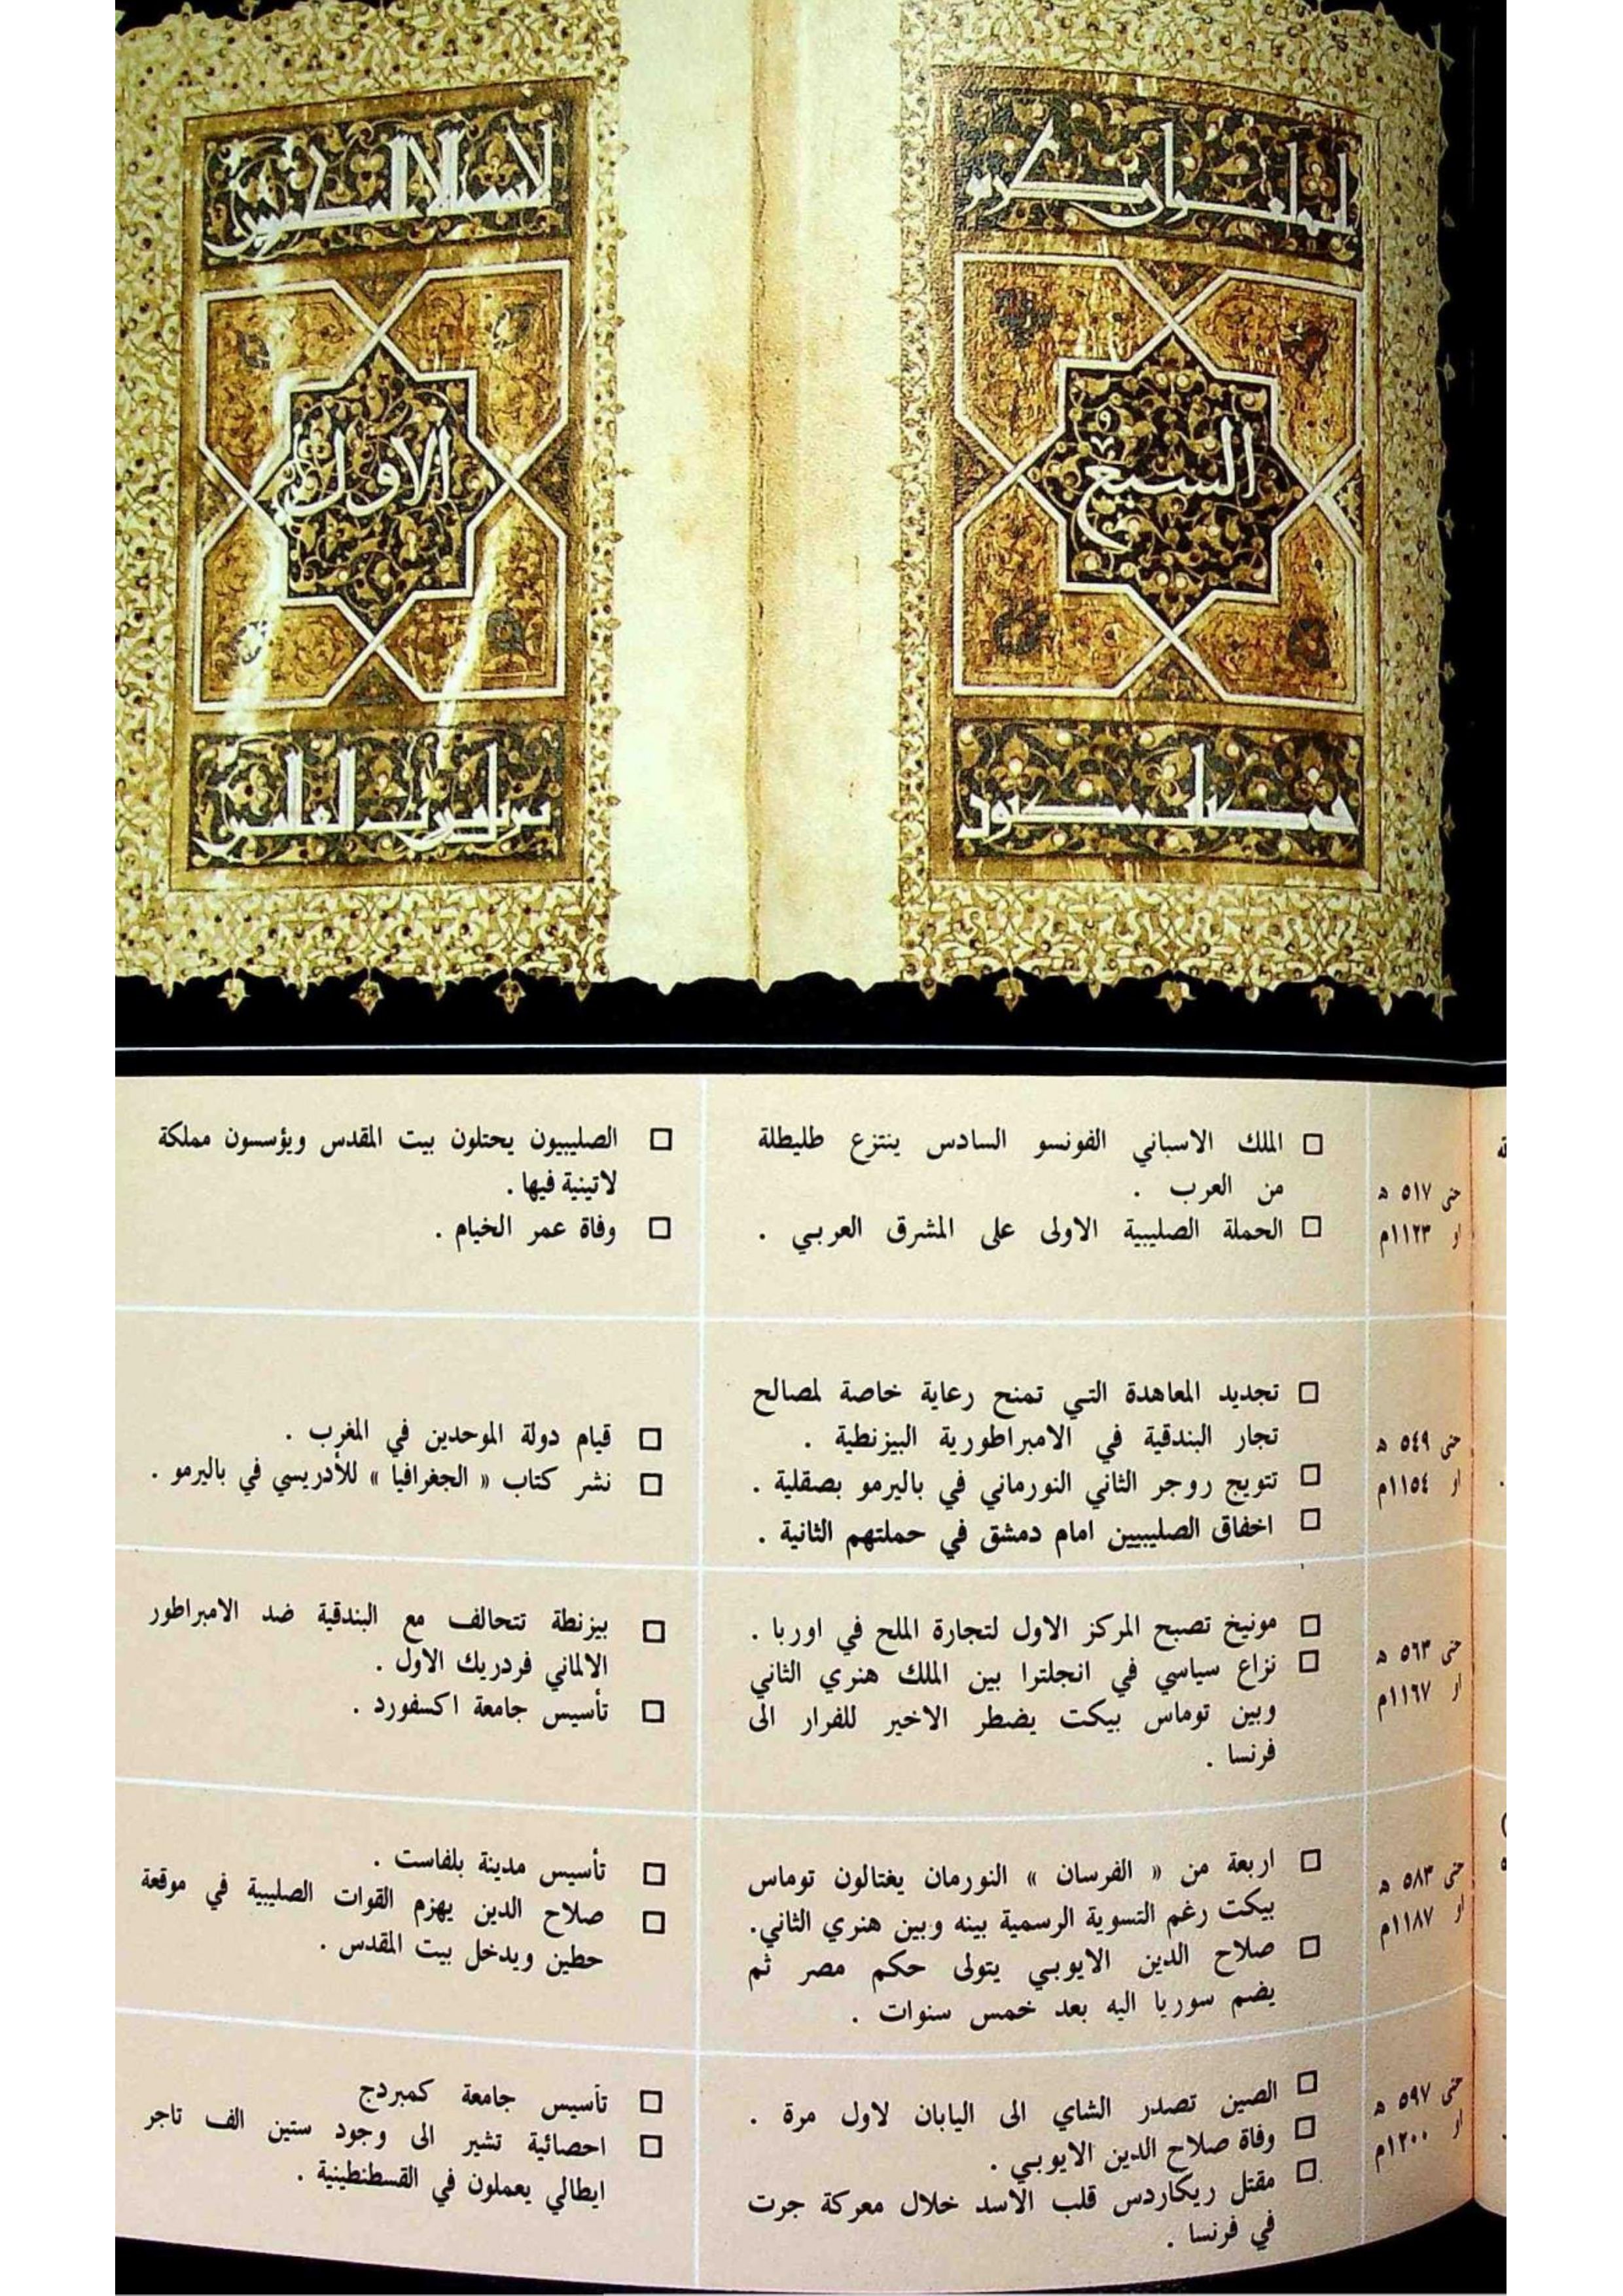 انه لقران كريم
السبع
في كتاب مكنون
لا يمسه الا المطهرون
الاول
تنزيل من رب العلمين
حتى ٥١٧ هـ
او ١١٢٣م
□ الملك الاسباني الفونسو السادس ينتزع طليطلة
من العرب .
□ الحملة الصليبية الاولى على المشرق العربي .
□ الصليبيون يحتلون بيت المقدس ويؤسسون مملكة
لاتينية فيها .
□ وفاة عمر الخيام .
حتى ٥٤٩ هـ
او ١١٥٤م
□ تجديد المعاهدة التي تمنح رعاية خاصة لمصالح
تجار البندقية في الامبراطورية البيزنطية .
□ تتويج روجر الثاني النورماني في باليرمو بصقلية .
□ اخفاق الصليبيين امام دمشق في حملتهم الثانية .
□ قيام دولة الموحدين في المغرب .
□ نشر كتاب « الجغرافيا » للأدريسي في باليرمو .
حتى ٥٦٣ هـ
او ١١٦٧م
□ مونيخ تصبح المركز الاول لتجارة الملح في اوربا .
□ نزاع سياسي في انجلترا بين الملك هنري الثاني
وبين توماس بيكت يضطر الاخير للفرار الى
فرنسا .
□ بيزنطة تتحالف مع البندقية ضد الامبراطور
الالماني فردريك الاول .
□ تأسيس جامعة اكسفورد .
حتى ٥٨٣ هـ
او ١١٨٧م
□ اربعة من « الفرسان » النورمان يغتالون توماس
بيكت رغم التسوية الرسمية بينه وبين هنري الثاني.
□ صلاح الدين الايوبي يتولى حكم مصر ثم
يضم سوريا اليه بعد خمس سنوات .
□ تأسيس مدينة بلفاست .
□ صلاح الدين يهزم القوات الصليبية في موقعة
حطين ويدخل بيت المقدس .
حتى ٥٩٧ هـ
او ١٢٠٠م
□ الصين تصدر الشاي الى اليابان لاول مرة .
□ وفاة صلاح الدين الايوبي .
□ مقتل ريكاردس قلب الاسد خلال معركة جرت
في فرنسا .
□ تأسيس جامعة كمبردج
□ احصائية تشير الى وجود ستين الف تاجر
ايطالي يعملون في القسطنطينية .